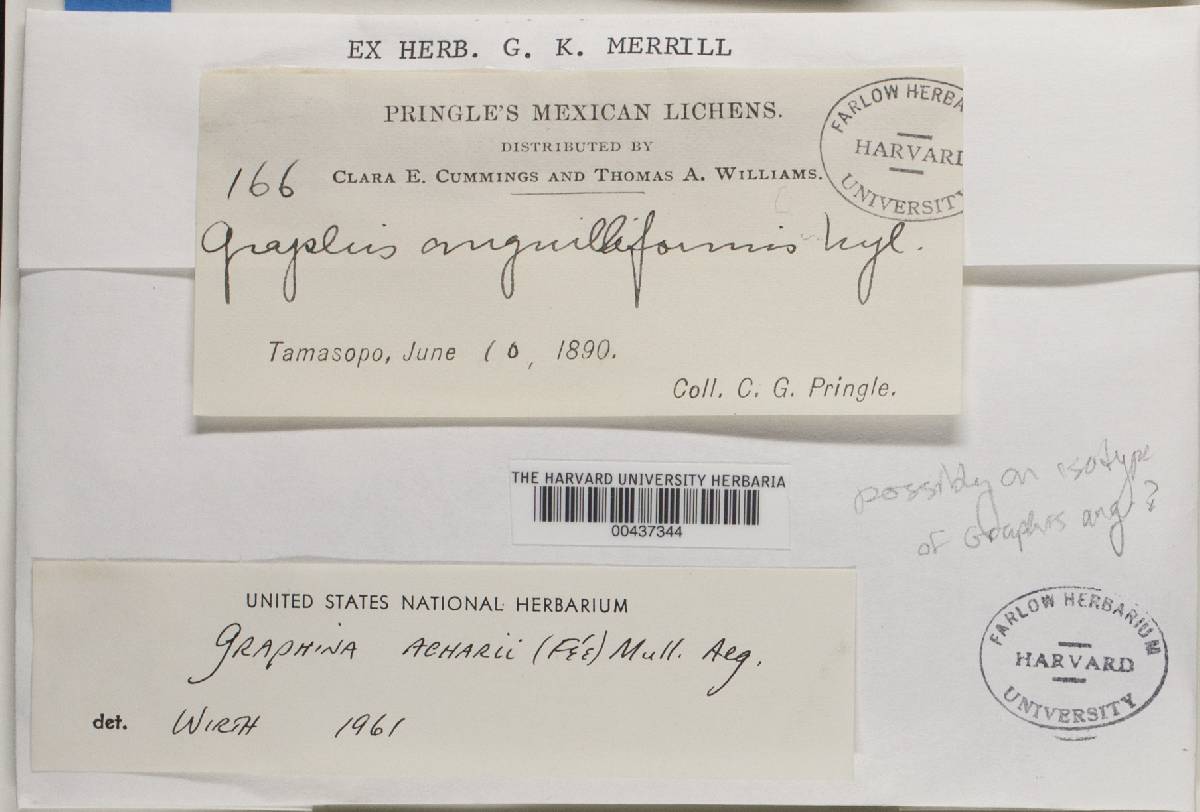 EX HERB. G. K. MERRILL
PRINGLE'S MEXICAN LICHENS.
DISTRIBUTED BY
166 CLARA E. CUMMINGS AND THOMAS A. WILLIAMS.
Graphis anguilliformis Nyl.
Tamasopo, June 10, 1890.
Coll. C. G. Pringle.
FARLOW HERBA
HARVARD
UNIVERSITY
THE HARVARD UNIVERSITY HERBARIA
00437344
possibly an isotype
of Graphis ang ?
UNITED STATES NATIONAL HERBARIUM
GRAPHINA ACHARII (FÉE) Mull. Arg.
det. WIRTH 1961
FARLOW HERBARIUM
HARVARD
UNIVERSITY